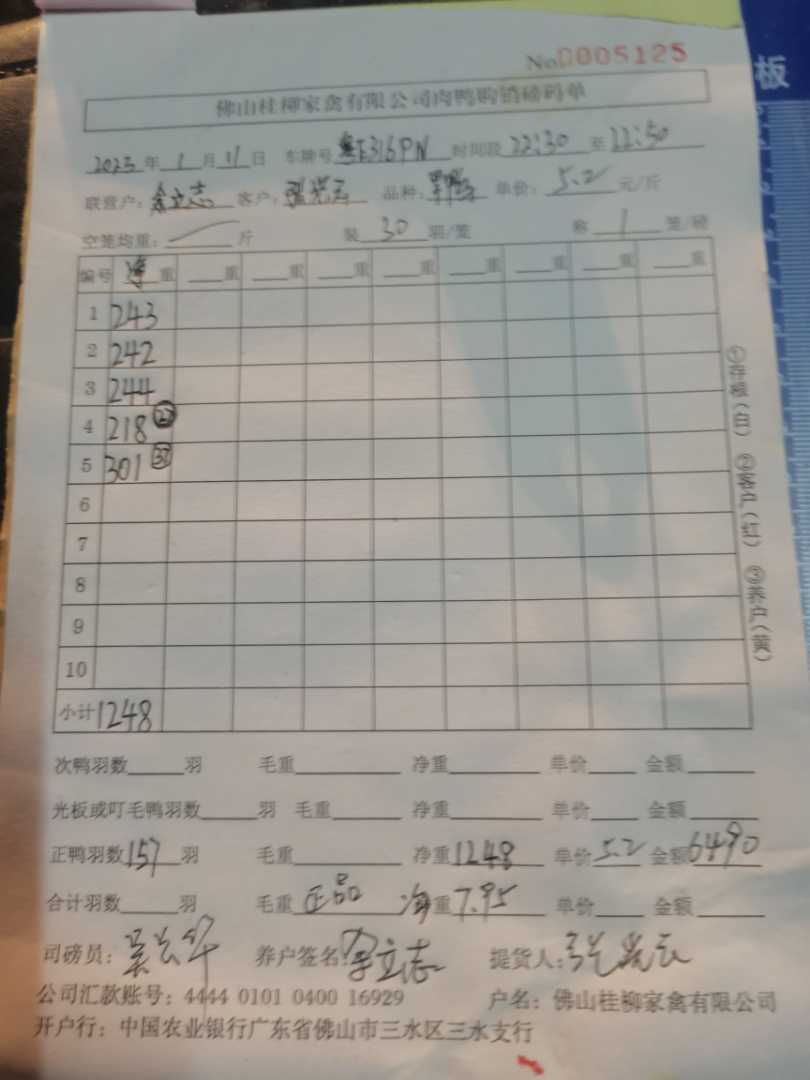 板
No 0005125
佛山桂柳家禽有限公司肉鸭购销磅码单
2025年 1月 11日 车牌号 粤E316PN 时间段 22:30 至 22:50
联营户: 余立志 客户: 单价: 5.2 元/斤
空笼均重: 斤 装 30 羽/笼 称 1 笼/磅
编号 净重 重 重 重 重 重 重 重 重
1 243
2 242
3 244
4 218 27
5 301
6
7
8
9
10
小计 1248
①存根(白) ②客户(红) ③养户(黄)
次鸭羽数 羽 毛重 净重 单价 金额
光板或叮毛鸭羽数 羽 毛重 净重 单价 金额
正鸭羽数 157 羽 毛重 净重 1248 单价 5.2 金额 6490
合计羽数 羽 毛重 正品 净重 7.95 单价 金额
司磅员: 养户签名: 余立志 提货人:
公司汇款账号: 4444 0101 0400 16929 户名: 佛山桂柳家禽有限公司
开户行: 中国农业银行广东省佛山市三水区三水支行